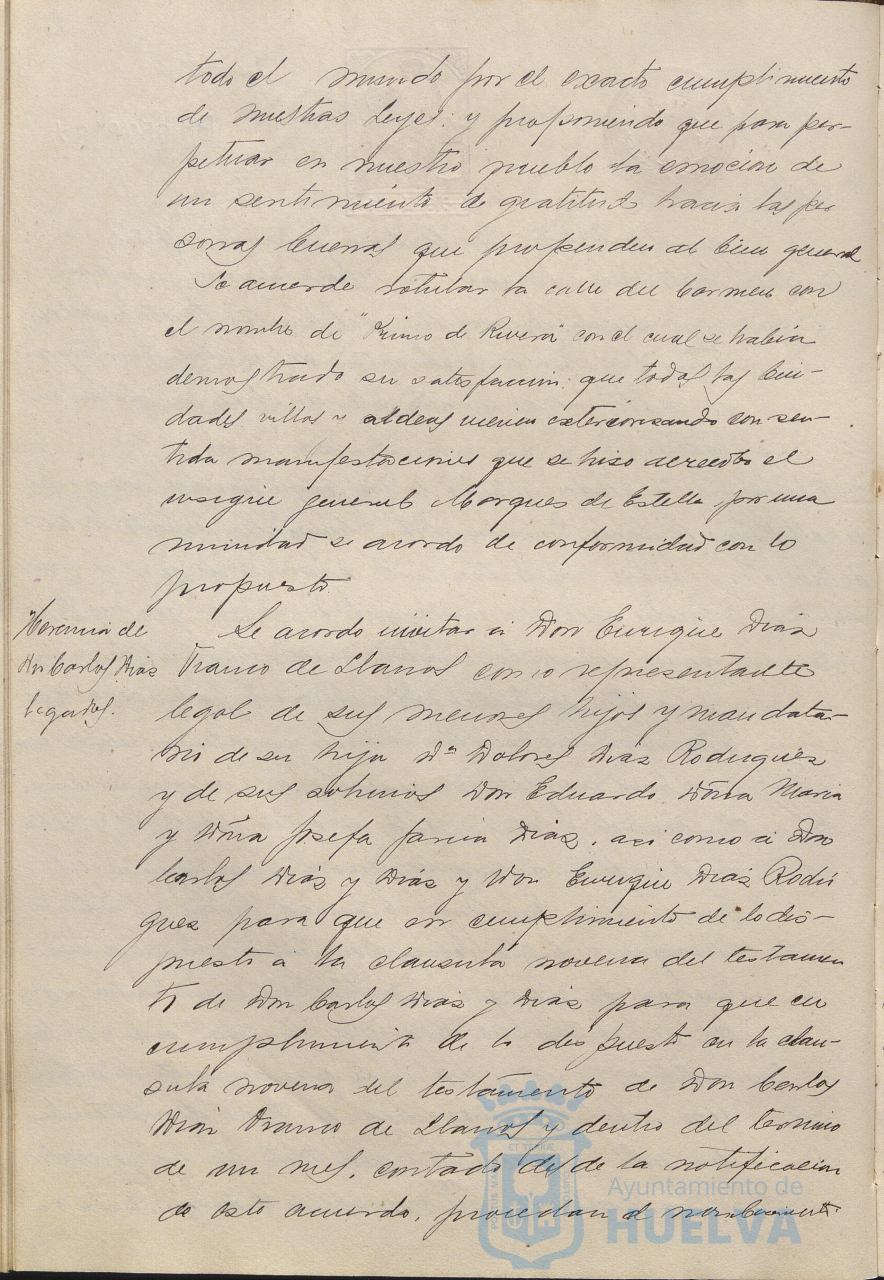 todo el mundo por el exacto cumplimiento
de nuestras leyes: y proponiendo que para per-
petuar en nuestro pueblo la emocion de
un sentimiento de gratitud hacia las per
sonas buenas que propenden al bien general
Se acuerde rotular la calle del Carmen con
el nombre de "Primo de Rivera" con el cual se habia
demostrado su satisfacion: que todas las ciu-
dades villas y aldeas vienen exteriorisando con sen-
tida manifestaciones que se hiso acreedor el
insigne general Marques de Estella por una
nimidad se acordo de conformidad con lo
propuesto.
Herencia de
Dn Carlos Dias
legados.
Se acordo invitar a Don Enrique Dias
Franco de Llanos como representante
legal de sus menores hijos y mandata-
rio de su hija Dª Dolores Dias Rodrigues
y de sus sobrinos Don Eduardo, Doña Maria
y Doña Josefa Garcia Dias, asi como a Don
Carlos Dias y Dias y Don Enrique Dias Rodri
gues para que en cumplimiento de lo dis-
puesto a la clausula novena del testamen
to de Don Carlos Dias y Dias para que en
cumplimiento de lo dispuesto en la clau-
sula novena del testamento de Don Carlos
Dias Franco de Llanos y dentro del termino
de un mes, contado desde la notificacion
de este acuerdo, procedan al nombramiento
Ayuntamiento de
HUELVA